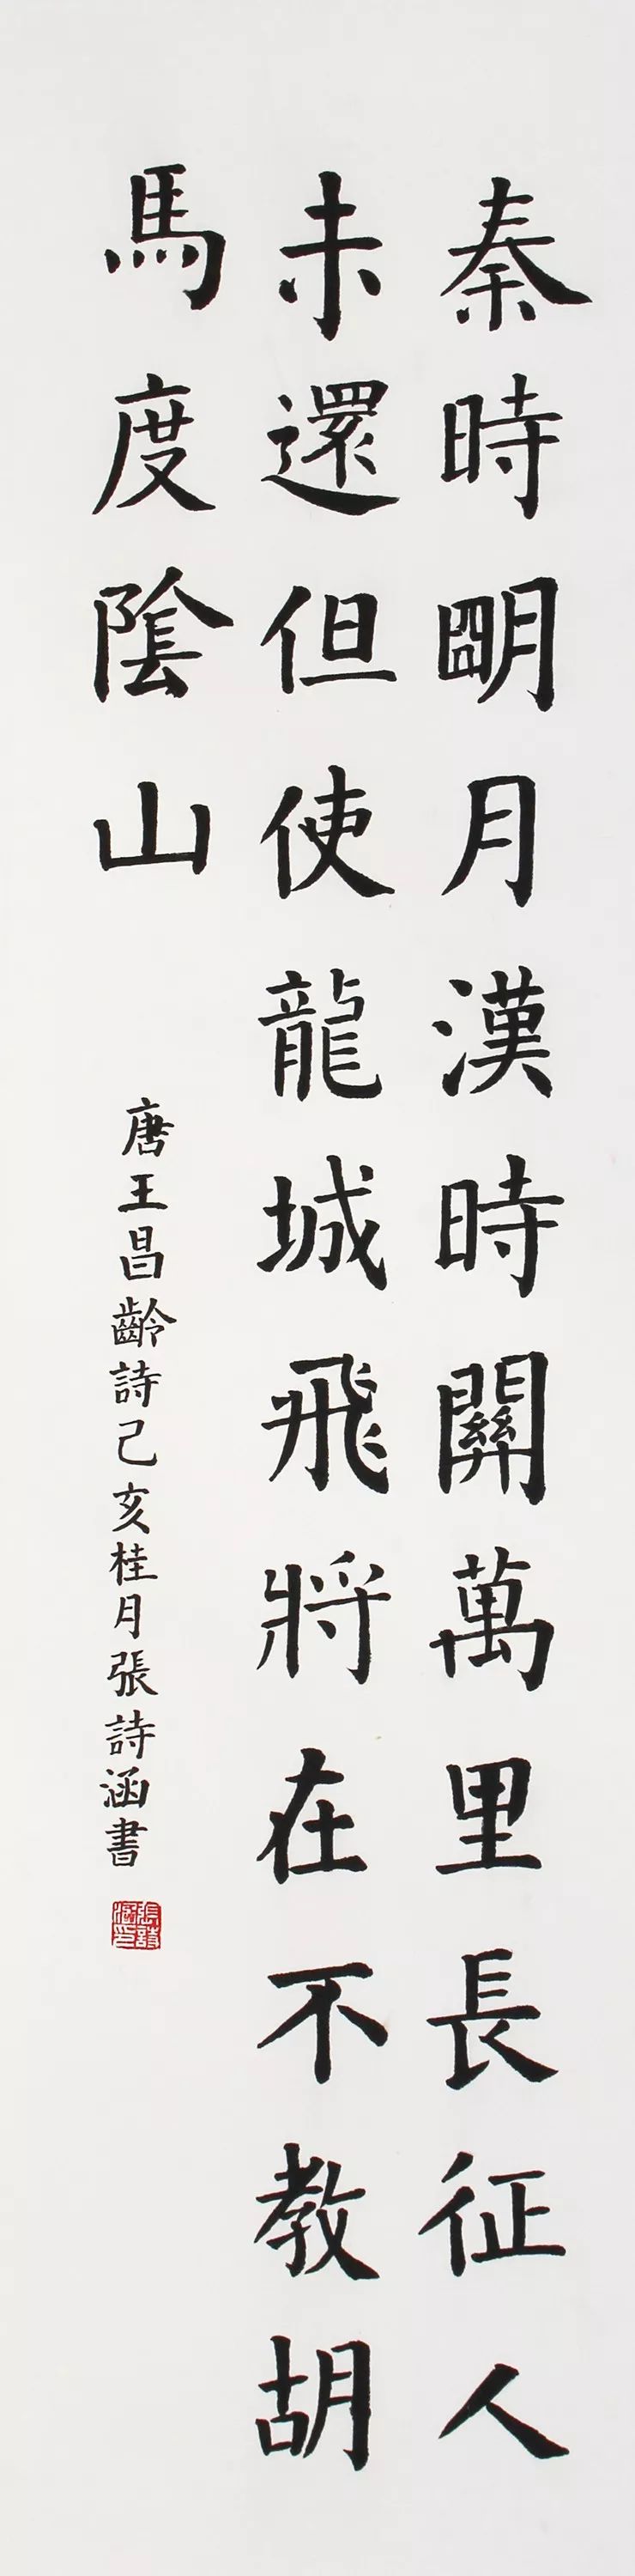 秦時朙月漢時關萬里長征人
未還但使龍城飛將在不教胡
馬度陰山
唐王昌齡詩己亥桂月張詩涵書